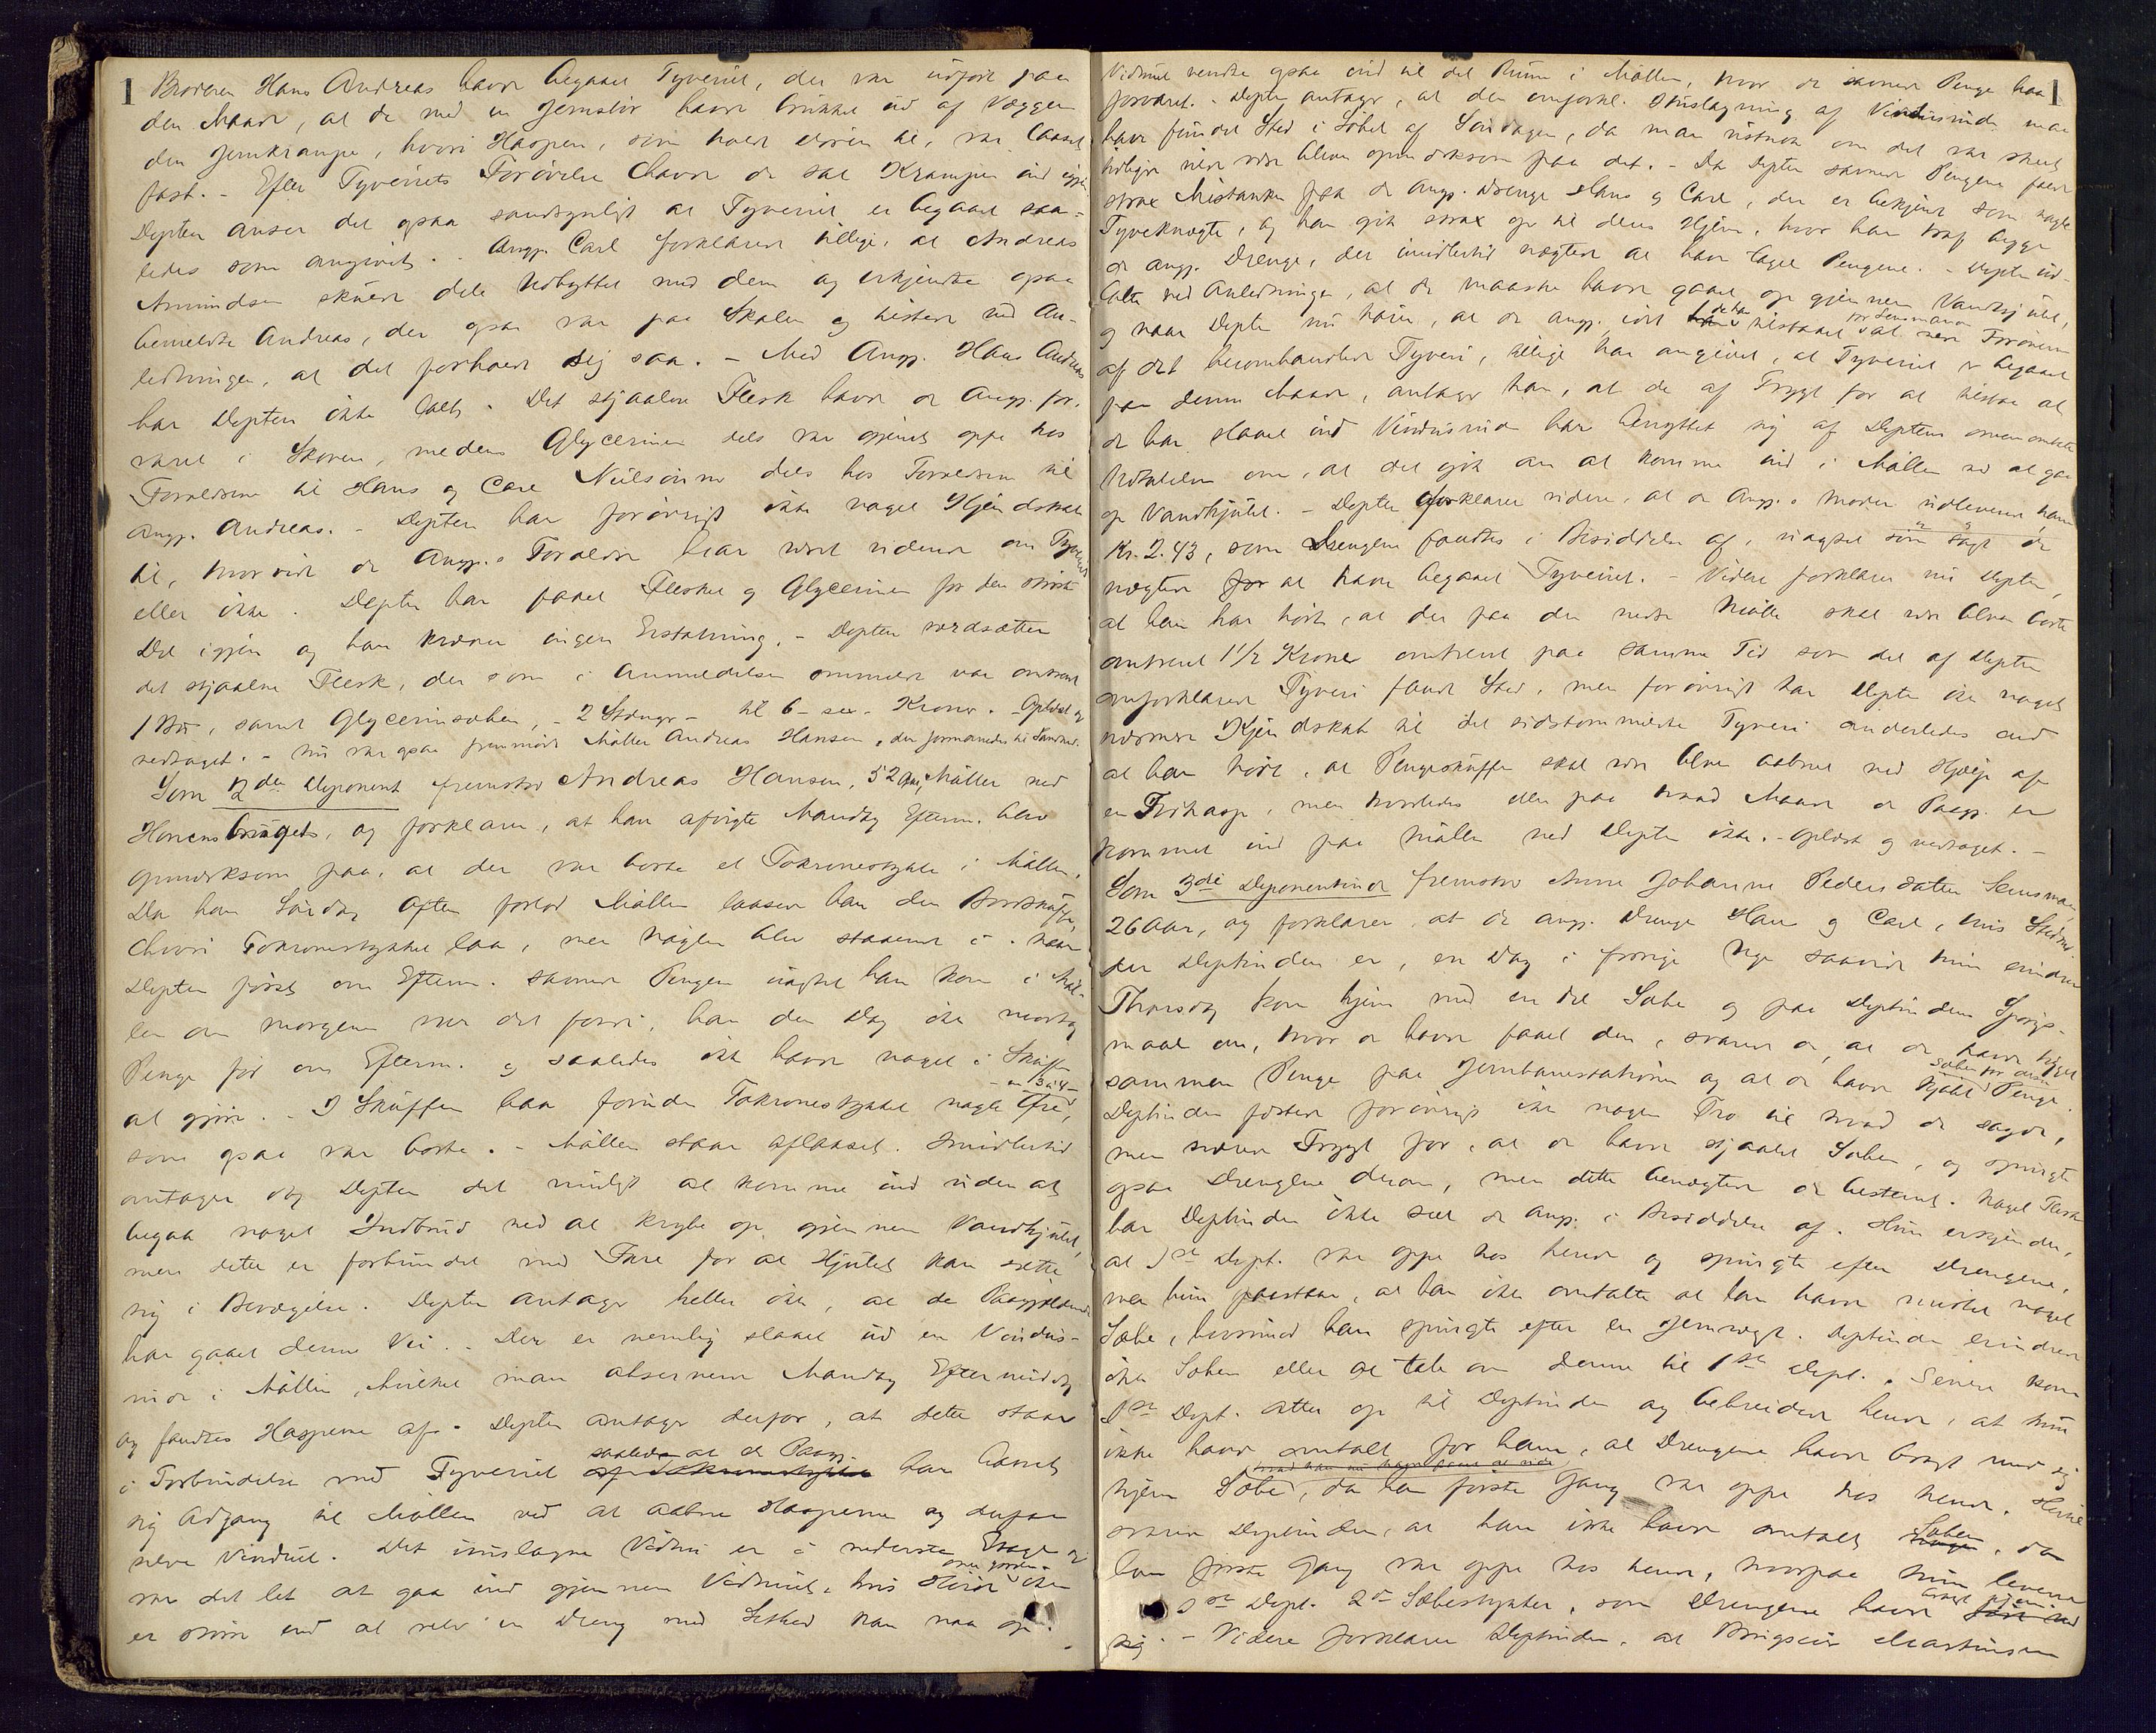 1
Broderen Hans Andreas havde begaaet Tyveriet, der var udført paa
den Maade, at de med en Jernstør havde brukket ud af Væggen
den Jernkrampe, hvori Haspen, som holdt Døren til, var laaset
fast. - Efter Tyveriets Forøvelse havde de sat Krampen ind igjen
Depten anser det ogsaa sandsynligt at Tyveriet er begaaet saa-
ledes som angivet. - Angp. Carl forklarede tillige, at Andreas
Amundsen skulde dele Udbyttet med dem og erkjendte ogsaa
bemeldte Andreas, der ogsaa var paa Skolen og tilstede ved An-
ledningen, at det forholdt sig saa. - Med Angp. Hans Andreas
har Depten ikke talt. Det stjaalne Flesk havde de Angp. for-
varet i Skoven, medens Glycerinen dels var gjemt oppe hos
Forældrene til Hans og Carl Nielsønner dels hos Forældrene til
Angp. Andreas. - Depten har forøvrigt ikke noget Kjendskab
til, hvorvidt de Angp.s Forældre har været vidende om Tyveriet
eller ikke. Depten har faaet Flesket og Glycerinen for den største
Del igjen og han kræver ingen Erstatning. - Depten værdsætter
det stjaalne Flesk, der som i Anmeldelsen ommeldt var omtrent
1 Bog, samt Glycerinsæben, - 2 Stænger - til 6 - sex - Kroner. Oplæst og
vedtaget. - Nu var ogsaa fremmødt Møller Andreas Hansen, der formanedes til Sandhed.
Som 2den Deponent fremstod Andreas Hansen, 52 Aar, Møller ved
Honensbruget, og forklarer, at han afvigte Mandag Efterm. blev
opmærksom paa, at der var borte et Tokronestykke i Møllen.
Da han Lørdag Aften forlod Møllen laasede han den Bordskuffe,
hvori Tokronestykket laa, men Nøglen blev staaende i. Naar
Depten først om Efterm. savnede Pengene uagtet han kom i Møl-
len om Morgenen var det fordi, han den Dag ikke modtog
Penge før om Efterm. og saaledes ikke havde noget i Skuffen
at gjøre. - I Skuffen laa foruden Tokronestykket nogle Øre, - en 3 a 4 -
som ogsaa var borte. - Møllen staar aflaaset. Imidlertid
antager dog Depten det muligt at komme ind uden at
begaa noget Indbrud ved at krybe op gjennem Vandhjulet,
men dette er forbundet med Fare for at Hjulet kan sætte
sig i Bevægelse. Depten antager heller ikke, at de Paagjældende
har gaaet denne Vei. - Der er nemlig slaaet ud en Vindus-
rude i Møllen, hvilket man observerede Mandag Eftermiddag
og fandtes Hasperne af. Depten antager derfor, at dette staar
i Forbindelse med Tyveriet saaledes at de Paagj. har banet
sig Adgang til Møllen ved at aabne Hasperne og derpaa
selve Vinduet. Det indslagne Vindu er i nederste Etage og
var det let at gaa ind gjennem Vinduet, hvis Høide over Jorden ikke
er større end at selv en Dreng med Lethed kan naa op.
1
Vinduet vendte ogsaa ind til det Rum i Møllen, hvor de savnede Penge var
forvaret. - Depten antager, at den omforkl. Indslagning af Vinduesruden maa
have fundet Sted i Løbet af Søndagen, da man vistnok om det var skeet
tidligere vilde være bleven opmærksom paa det. - Da Depten savnede Pengene faldt
strax Mistanken paa de Angp. Drenge Hans og Carl, der er bekjendt som nogle
Tyveknægte, og han gik strax op til deres Hjem, hvor han traf begge
de angp. Drenge, der imidlertid nægtede at have taget Pengene. - Depten ud-
talte ved Anledningen, at de maaske havde gaaet op gjennem Vandhjulet,
og naar Depten nu hører, at de angp. idet de har tilstaaet for Lensmanden at være Forøvere
af det heromhandlede Tyveri, tillige har angivet, at Tyveriet er begaaet
paa denne Maade, antager han, at de af Frygt for at tilstaa at
de har slaaet ind Vinduesruden har benyttet sig af Deptens ovenomtalte
Udtalelse om, at det gik an at komme ind i Møllen ved at gaa
op Vandhjulet. - Depten forklarer videre, at de Angp.s Moder udleverede ham
Kr. 2.43, som Drengene fandtes i Besiddelse af, uagtet som sagt de
nægtede at have begaaet Tyveriet. - Videre forklarer nu Depten,
at han har hørt, at der paa den nedre Mølle skal være bleven borte
omtrent 1 1/2 Kroner omtrent paa samme Tid som det af Depten
omforklarede Tyveri fandt Sted, men forøvrigt har Depten ikke noget
nærmere Kjendskab til det sidstommeldte Tyveri anderledes end
at han hørte, at Pengeskuffen skal være bleven aabnet ved Hjælp af
en Trihasp, men hvorledes eller paa hvad Maade de Paagj. er
kommet ind paa Møllen ved Depten ikke. - Oplæst og vedtaget. -
Som 3die Deponentinde fremstod Anne Johanne Pedersdatter Semsmoen,
26 Aar, og forklarer, at de angp. Drenge Hans og Carl, hvis Stedmoder
Deptinden er, en Dag i forrige Uge saavidt hun erindrer
Thorsdag kom hjem med en Del Sæbe og paa Deptindens Spørgs-
maal om, hvor de havde faaet den, svarede de, at de havde tigget
sammen Penge paa Jernbanestationen og at de havde kjøbt Sæben for disse Penge.
Deptinden fæstede forøvrigt ikke nogen Tro til hvad de sagde,
men nærede Frygt for, at de havde stjaalet Sæben, og spurgte
ogsaa Drengene derom, men dette benægtede de bestemt. Noget Flesk
har Deptinden ikke seet de angp. i Besiddelse af. Hun erkjender,
at 1ste Dept. var oppe hos hende og spurgte efter Drengene,
men hun paastaar, at han ikke omtalte at han havde mistet noget
Sæbe, hvorimod han spurgte efter en Jernvægt. Deptinden erindrede
ikke Sæben eller at tale om denne til 1ste Dept. Senere kom
1ste Dept. atter op til Deptinden og bebreidede hende, at hun
ikke havde omtalt for ham, at Drengene havde bragt med sig
hjem Sæbe, da han første Gang var oppe hos hende. Hertil
svarede Deptinden, at han ikke havde omtalt Sæben, da
han første Gang var oppe hos hende, hvorpaa hun leverede
1ste Dept. 2de Sæbestykker, som Drengene havde bragt hjem med
sig. - Videre forklarer Deptinden, at Brugseier Martinsen